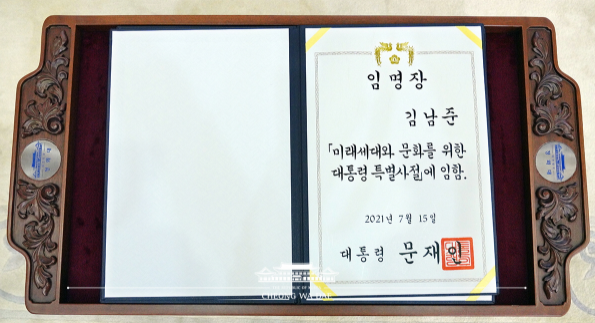 임명장
김남준
「미래세대와 문화를 위한
대통령 특별사절」에 임함.
2021년 7월 15일
대통령 문재인
CHEONG WA DAE